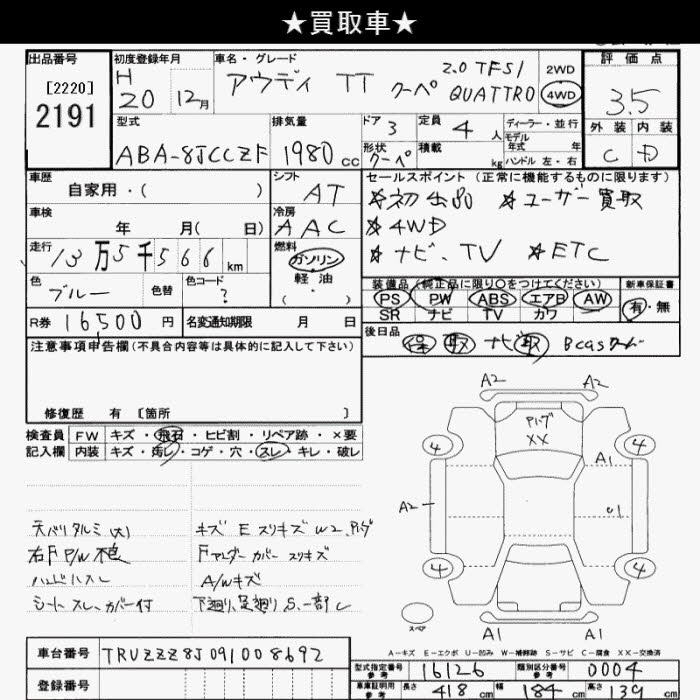 ★買取車★
出品番号
[2220]
2191
初度登録年月
H 20 12月
車名・グレード
アウディ TT クーペ 2.0 TFSI QUATTRO
2WD
4WD
評価点
3.5
外装 内装
C D
型式
ABA-8JCCZF
排気量
1980 cc
ドア 3
形状
クーペ
定員 4 人
積載 kg
ディーラー・並行
モデル
年式 年式
ハンドル 左・右
車歴
自家用・( )
シフト
AT
車検
年 月( 日)
冷房
AAC
走行 13万5千566 km
燃料
ガソリン
軽油
( ・ )
色
ブルー
色替
色コード
?
R券 16500 円
名変通知期限 月 日
セールスポイント(正常に機能するものに限ります)
☆初出品 ☆ユーザー買取
☆4WD
☆ナビ、TV ☆ETC
装備品(純正品に限り○をつけてください)
PS PW ABS エアB AW
SR ナビ TV カワ
新車保証書
有・無
後日品
保 取 ナビ取 Bcasカード
注意事項申告欄(不具合内容等は具体的に記入して下さい)
修復歴 有 [箇所 ]
検査員
記入欄
FW キズ・飛石・ヒビ割・リペア跡・×要
内装 キズ・汚レ・コゲ・穴・スレ・キレ・破レ
天バリタルミ(大)
右F P/W不良
ハンドルスレ
シートスレ、カバー付
キズ E スリキズ W2、Pハゲ
Fアンダーカバー スリキズ
A/Wキズ
下廻り、足廻りS、一部C
A2 A2
Pハゲ
XX
4 4
A1
A2
U1
4 4
スペア
A1 A1
A-キズ E-エクボ U-凹み W-補修跡 S-サビ C-腐食 XX-交換済
車台番号 TRUZZZ8J091008692
登録番号
型式指定番号
参考
16126
類別区分番号
参考
0004
車庫証明用
参考
長さ 418 cm 幅 184 cm 高さ 139 cm